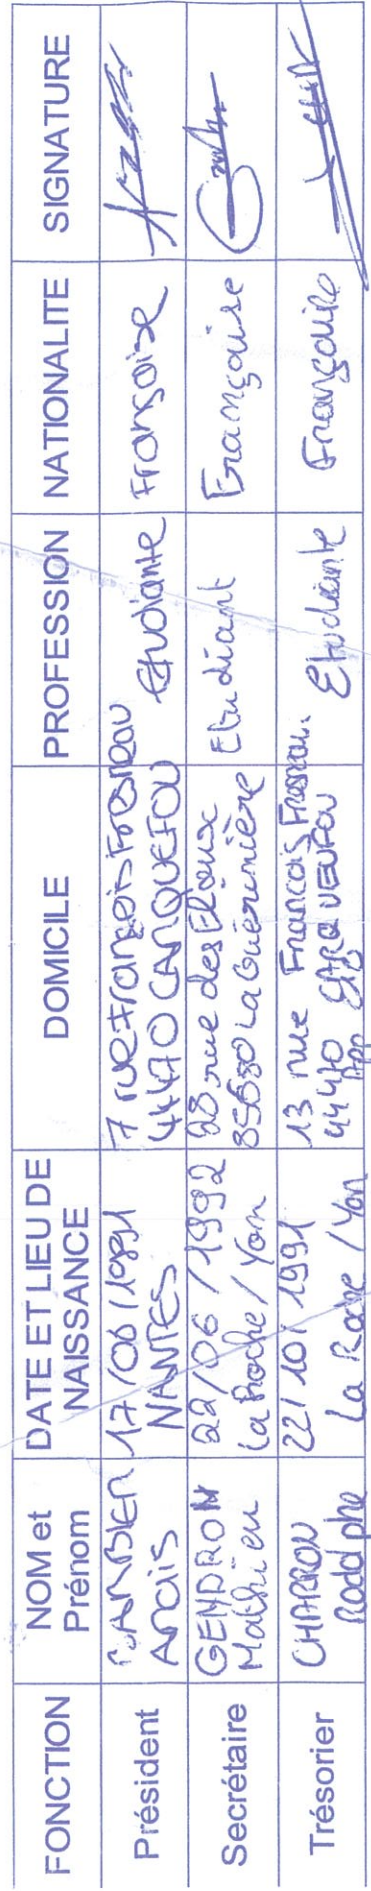 FONCTION
NOM et Prénom
DATE ET LIEU DE NAISSANCE
DOMICILE
PROFESSION
NATIONALITE
SIGNATURE
Président
BARBIER
Anaïs
17/06/1991
NANTES
7 rue François Fresneau
44470 CARQUEFOU
étudiante
Française
Secrétaire
GENDRON
Mathieu
22/06/1992
La Roche/Yon
28 rue des
85680 La Guérinière
Etudiant
Française
Trésorier
CHARRON
Rodolphe
22/10/1991
La Roche/Yon
13 rue François Fresneau.
44470
Etudiante
Française